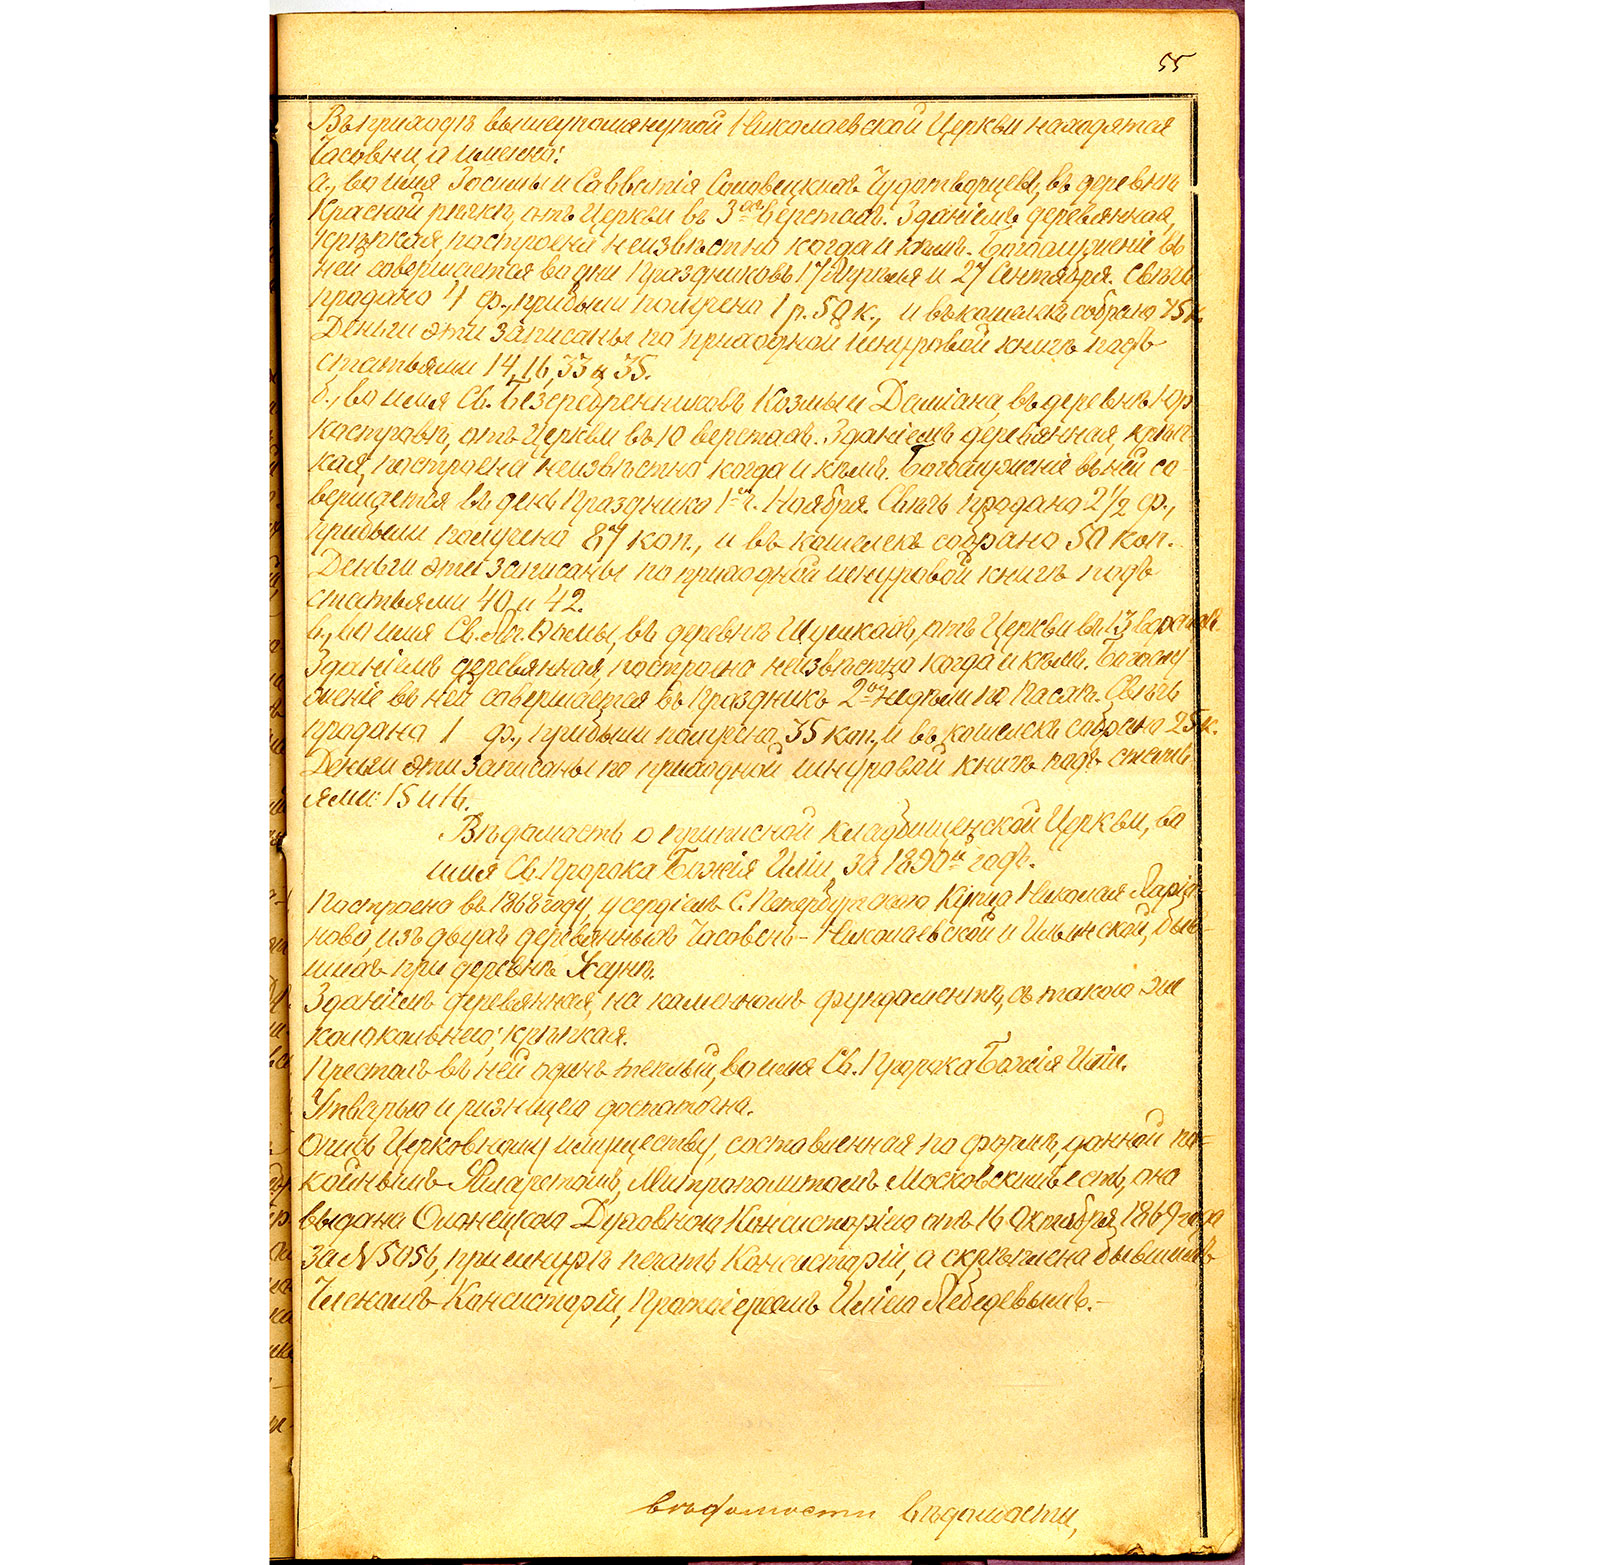 55
Въ приходѣ вышеупомянутой Николаевской Церкви находятся
Часовни, а именно:
а., во имя Зосимы и Савватія Соловецкихъ Чудотворцевъ, въ деревнѣ
Красной рѣчкѣ, отъ Церкви въ 3хъ верстахъ. Зданіемъ деревянная,
крѣпкая, построена неизвѣстно когда и кѣмъ. Богослуженіе въ
ней совершается во дни Праздниковъ 17 Апрѣля и 27 Сентября. Свѣчь
продано 4 ф., прибыли получено 1 р. 50 к., и въ кошелекъ собрано 75 к.
Деньги эти записаны по приходной шнуровой книгѣ подъ
статьями 14, 16, 33 и 35.
б., во имя Св. Безсребренниковъ Козмы и Даміана, въ деревнѣ Юр
костровѣ, отъ Церкви въ 10 верстахъ. Зданіемъ деревянная, крѣп-
кая, построена неизвѣстно когда и кѣмъ. Богослуженіе въ ней со
вершается въ день Праздника 1го ч. Ноября. Свѣчь продано 2 1/2 ф.,
прибыли получено 87 коп., и въ кошелекъ собрано 50 коп.
Деньги эти записаны по приходной шнуровой книгѣ подъ
статьями 40 и 42.
в., во имя Св. Ап. Ѳомы, въ деревнѣ от Церкви въ 13 верстахъ
Зданіемъ деревянная, построена неизвѣстно когда и кѣмъ. Богослу
женіе въ ней совершается въ Праздникъ 2ой недѣли по Пасхѣ. Свѣчь
продано 1 ф., прибыли получено 35 коп., и въ кошелекъ собрано 25 к.
Деньги эти записаны по приходной шнуровой книгѣ подъ стать
ями: 15 и 16.
Вѣдомость о приписной кладбищенской Церкви, во
имя Св. Пророка Божія Иліи, за 1890й годъ.
Построена въ 1868 году, усердіемъ С. Петербургскаго Купца Николая Ларіо-
нова, изъ двухъ деревянныхъ Часовень - Николаевской и Ильинской, быв-
шихъ при деревнѣ
Зданіемъ деревянная, на каменномъ фундаментѣ, съ такою же
колокольнею; крѣпкая.
Престолъ въ ней одинъ теплый, во имя Св. Пророка Божія Иліи.
Утварью и ризницею достаточна.
Опись Церковному имуществу, составленная по формѣ, данной по-
койнымъ Филаретомъ, Митрополитомъ Московскимъ есть, она
выдана Олонецкою Духовною Консисторіею отъ 16 Октября 1869 года
за № 5056, при шнурѣ печать Консисторіи, а скрѣплена бывшимъ
Членомъ Консисторіи, Протоіереемъ Иліею Лебедевымъ.-
вѣдомости вѣдомости,